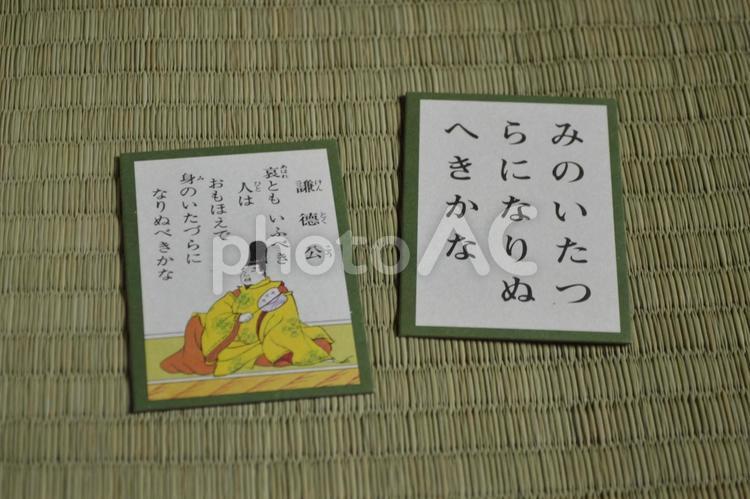 謙徳公
哀とも いふべき
人は
おもほえで
身のいたづらに
なりぬべきかな
みのいたつ
らになりぬ
へきかな
photoAC